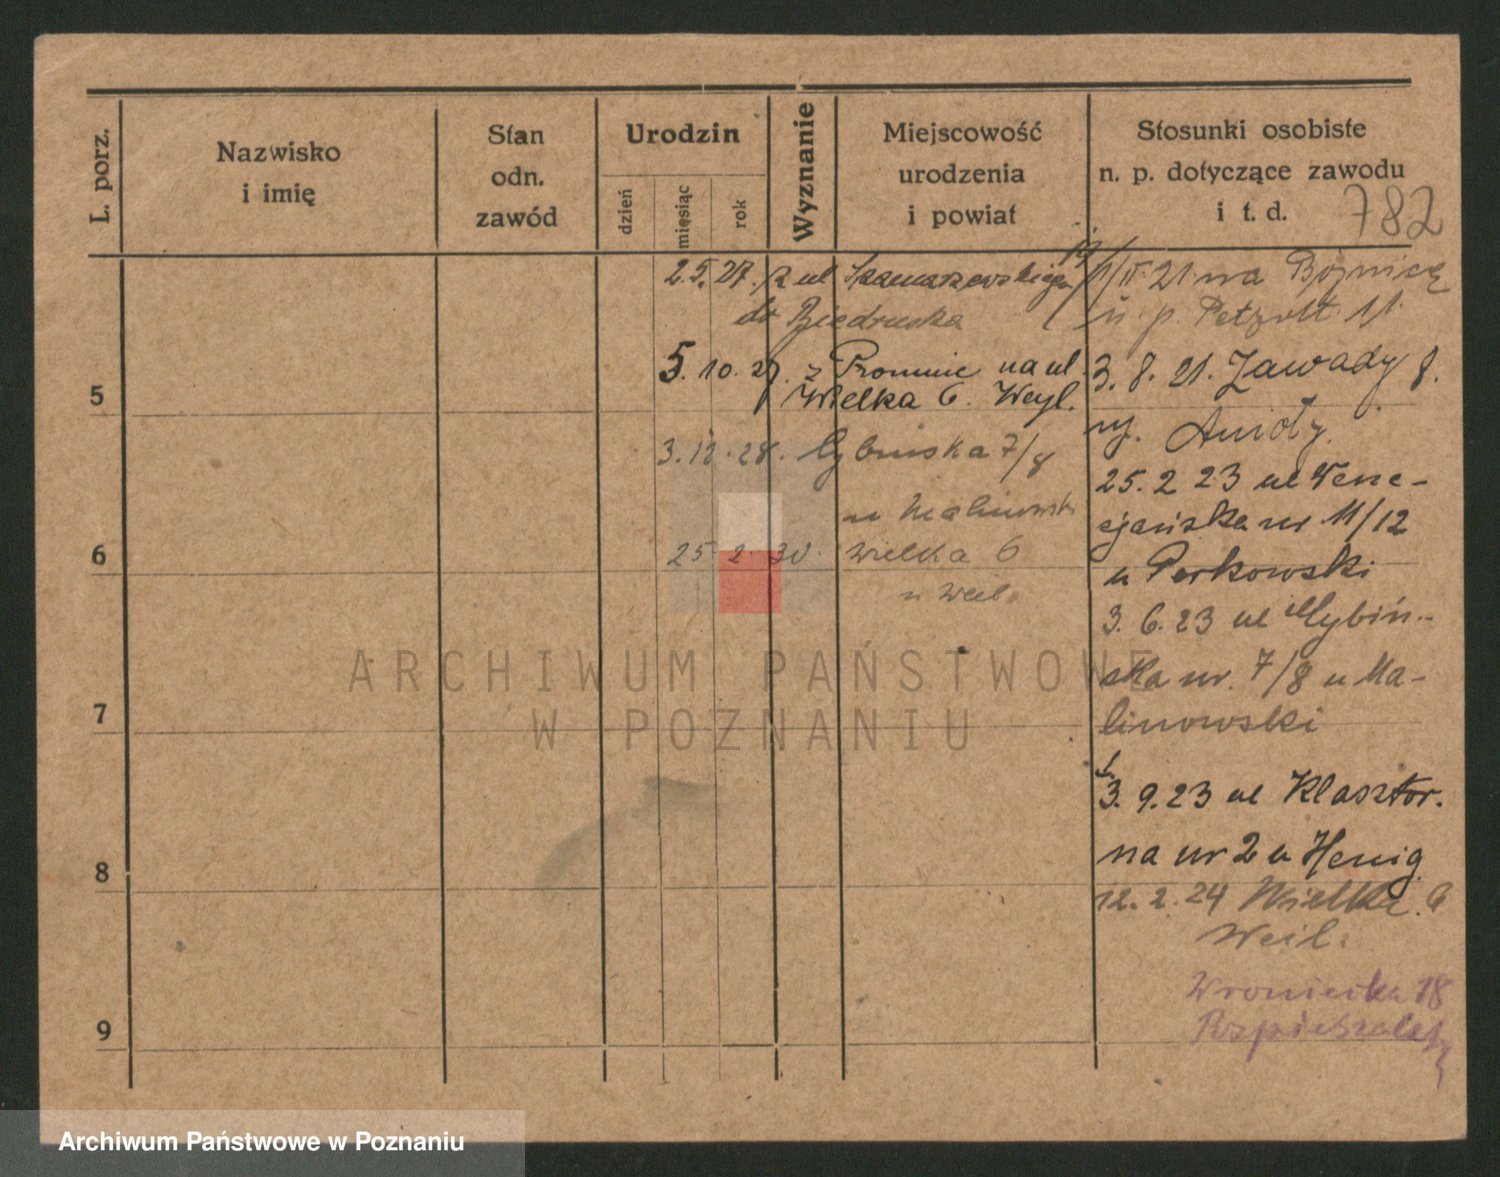 L. porz.
Nazwisko
i imię
Stan
odn.
zawód
Urodzin
dzień
miesiąc
rok
Wyznanie
Miejscowość
urodzenia
i powiat
Stosunki osobiste
n. p. dotyczące zawodu
i t. d.
782
2. 5. 27. z ul
do Biedruska
5. 10. 27. z Promnic na ul.
Wielka 6. Weyl.
3. 12. 28. Cybińska 7/8
u Malinowski
25 2. 30. Wielka 6
u Weil
21 na
u p. Petzolt
3. 8. 21. Zawady 8.
Anioły.
25. 2 23 ul Wene-
cjańska nr 11/12
u Perkowski
3. 6. 23 ul Cybiń-
ska nr. 7/8 u Ma-
linowski
3. 9. 23 ul Klasztor.
na nr 2 u Henig
12. 2. 24 Wielka 6
Weil.
Wroniecka 18
5
6
7
8
9
ARCHIWUM PAŃSTWOWE
W POZNANIU
Archiwum Państwowe w Poznaniu